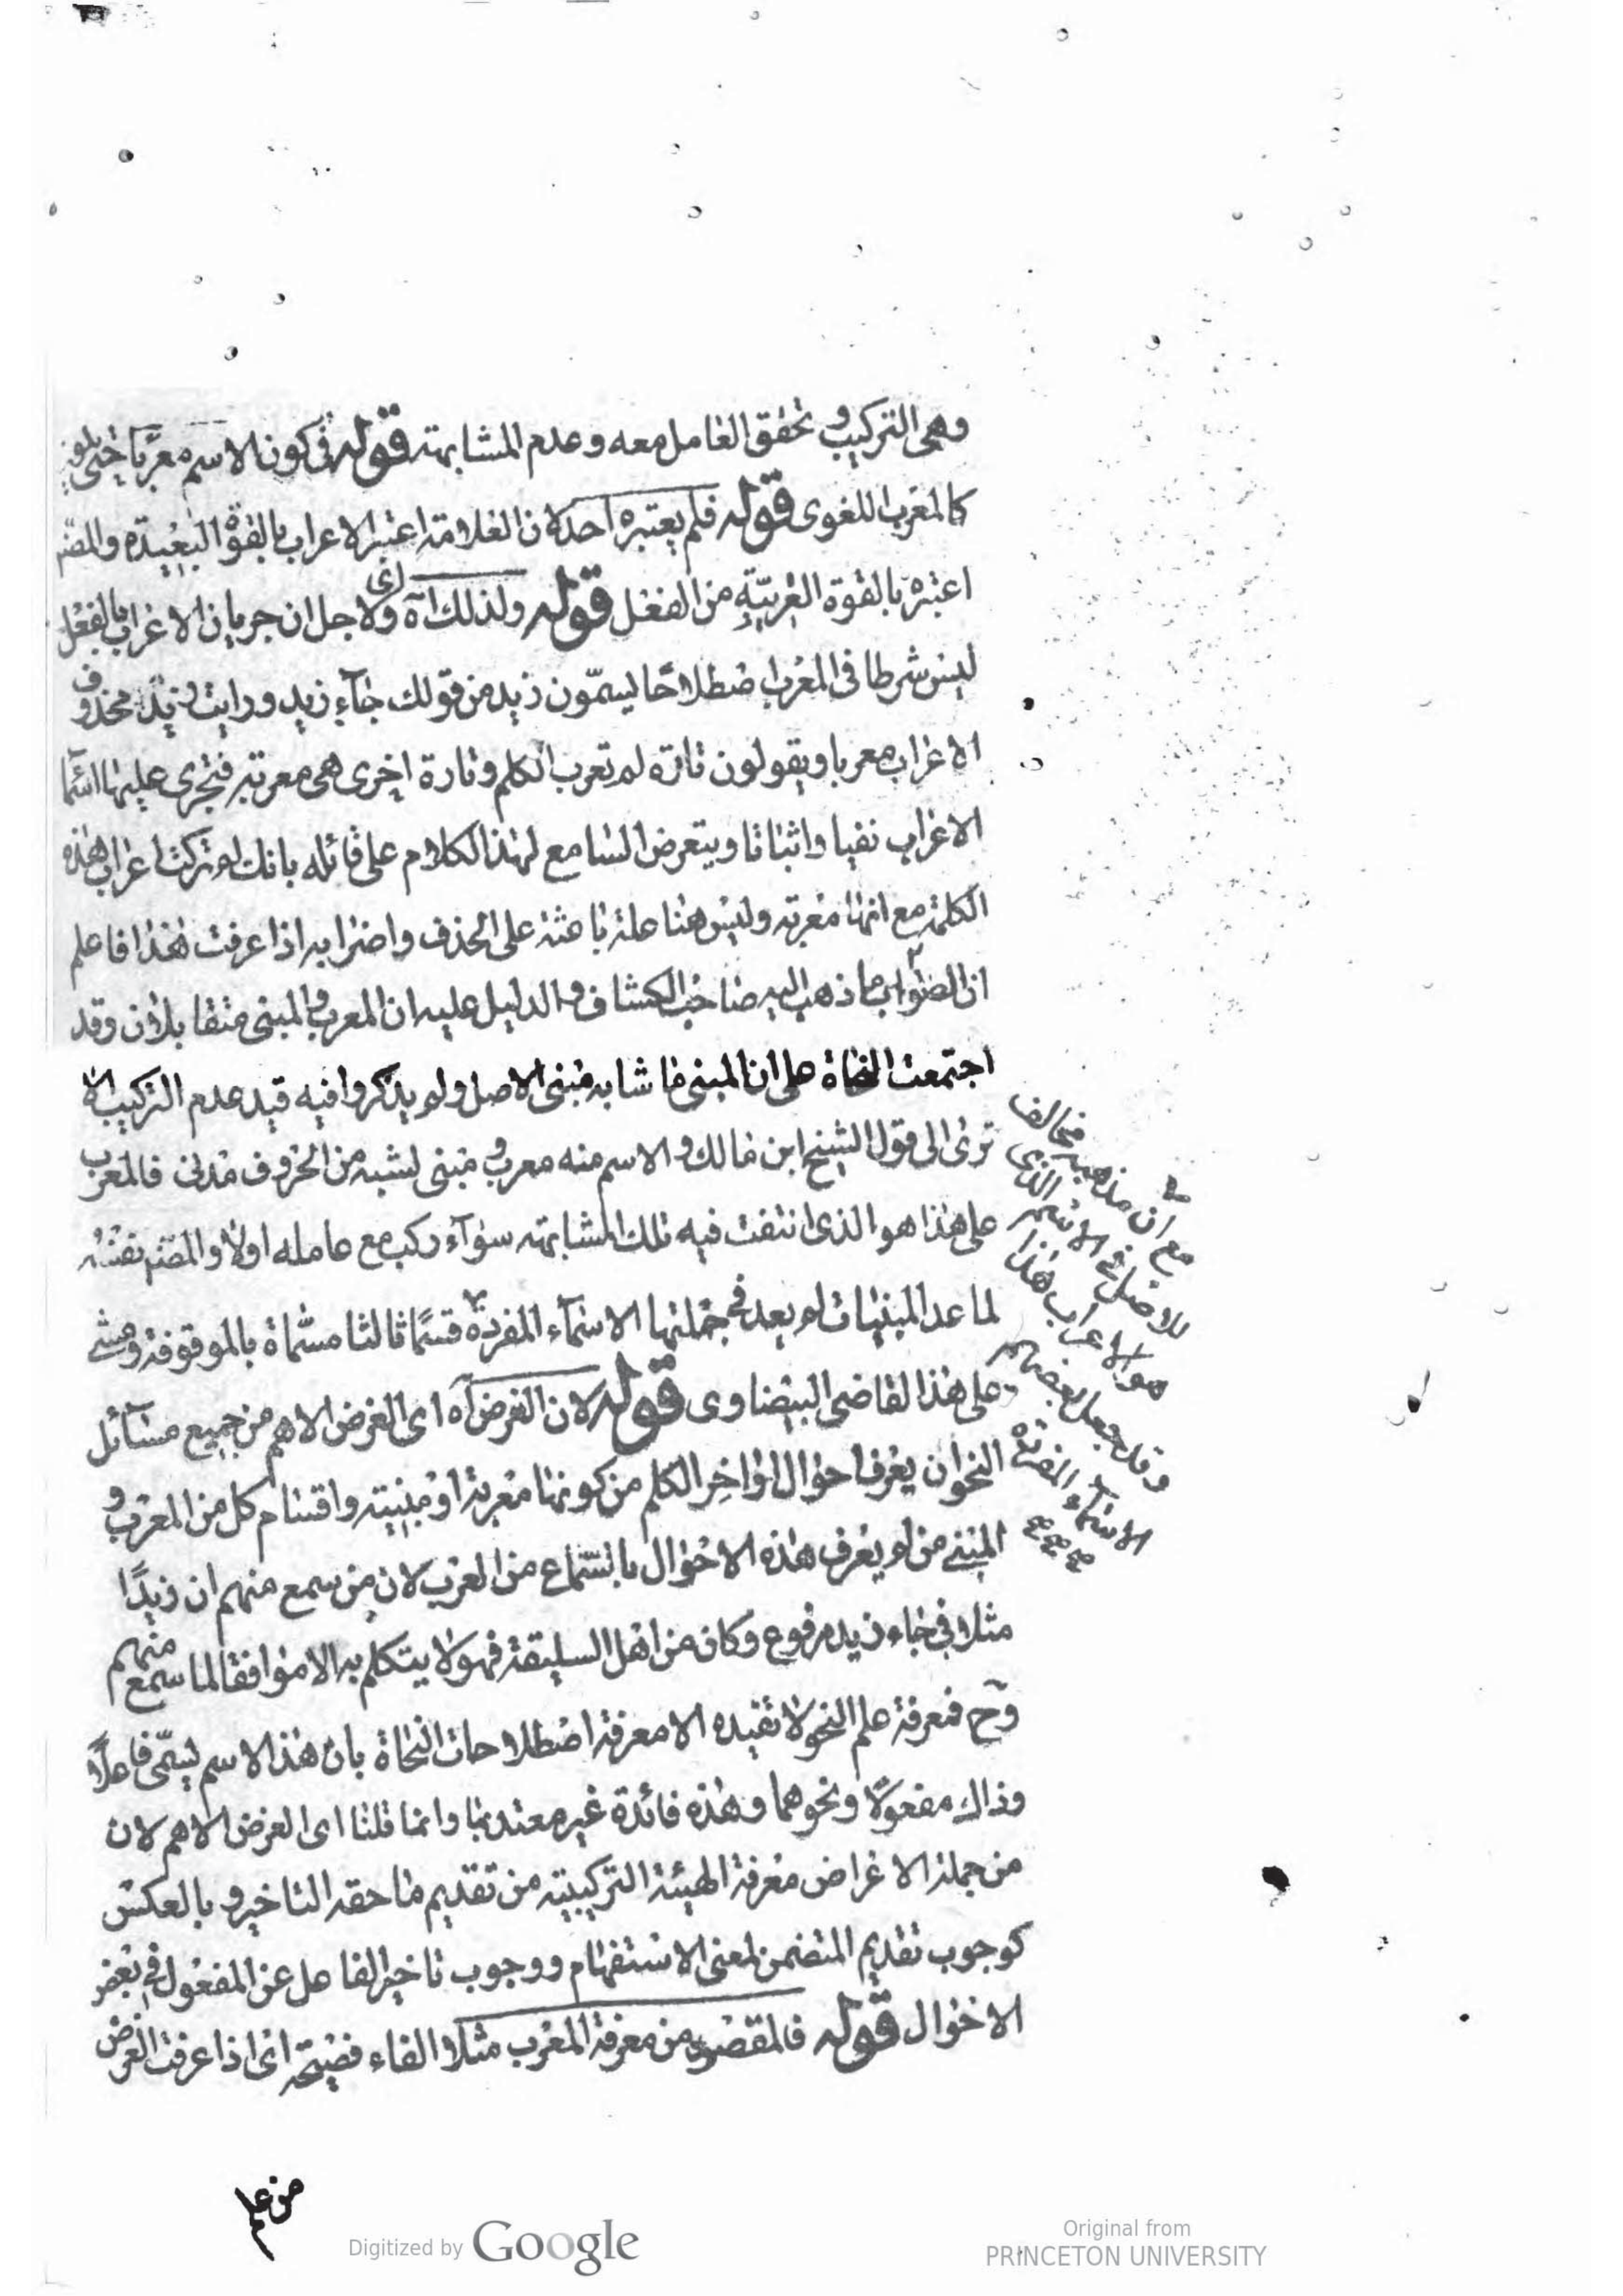 وهي التركيب وتحقق العامل معه وعدم المشابهة قوله في كون الاسم معربا حتى يكون
كالمعرب اللغوى قوله فلم يعتبره احد لان العلامة اعتبر الاعراب بالقوة البعيدة والمصنف
اعتبره بالقوة القريبة من الفعل قوله ولذلك آه اى ولاجل ان جريان الاعراب بالفعل
ليس شرطا فى المعرب اصطلاحا يسمون زيد من قولك جاء زيد ورايت زيد محذوف
الاعراب معربا ويقولون تارة لم تعرب الكلم وتارة اخرى هى معربة فتجرى عليها اسما
الاعراب نفيا واثباتا ويتعرض السامع لهذا الكلام على قائله بانك لم تركت اعراب هذه
الكلمة مع انها معربة وليس هنا علة باعثة على الحذف واضرابه اذا عرفت هذا فاعلم
ان الصواب ما ذهب اليه صاحب الكشاف والدليل عليه ان المعرب والمبنى متقابلان وقد
اجتمعت النحاة على ان المبنى ما شابه مبنى الاصل ولم يذكروا فيه قيد عدم التركيب الا
ترى الى قول الشيخ ابن مالك والاسم منه معرب ومبنى لشبه من الحروف مدنى فالمعرب
على هذا هو الذى انتفت فيه تلك المشابهة سواء ركب مع عامله اولا والمصنف نفسه
لما عد المبنيات لم يعد فى جملتها الاسماء المفردة قسما ثالثا مسماة بالموقوفة ومشى
على هذا القاضى البيضاوى قوله لان الغرض آه اى الغرض الاهم من جميع مسائل
النحو ان يعرف احوال اواخر الكلم من كونها معربة او مبنية واقسام كل من المعرب و
المبنى من لم يعرف هذه الاحوال بالسماع من العرب لان من سمع منهم ان زيدا
مثلا فى جاء زيد مرفوع وكان من اهل السليقة فهو لا يتكلم به الا موافقا لما سمع منهم
وح فمعرفة علم النحو لا تفيده الا معرفة اصطلاحات النحاة بان هذا الاسم يسمى فاعلا
وذاك مفعولا ونحوهما وهذه فائدة غير معتد بها وانما قلنا اى الغرض الاهم لان
من جملة الاغراض معرفة الهيئة التركيبية من تقديم ما حقه التاخير وبالعكس
كوجوب تقديم المتضمن لمعنى الاستفهام ووجوب تاخير الفاعل عن المفعول فى بعض
الاحوال قوله فالمقصود من معرفة المعرب مثلا الفاء فصيحة اى اذا عرفت الغرض
من علم
مع ان مذهبه مخالف
للاصل فى الاسم الذى
هو الاعراب هذا
وقد جعل بعضهم
الاسماء المفردة
Digitized by Google
Original from
PRINCETON UNIVERSITY